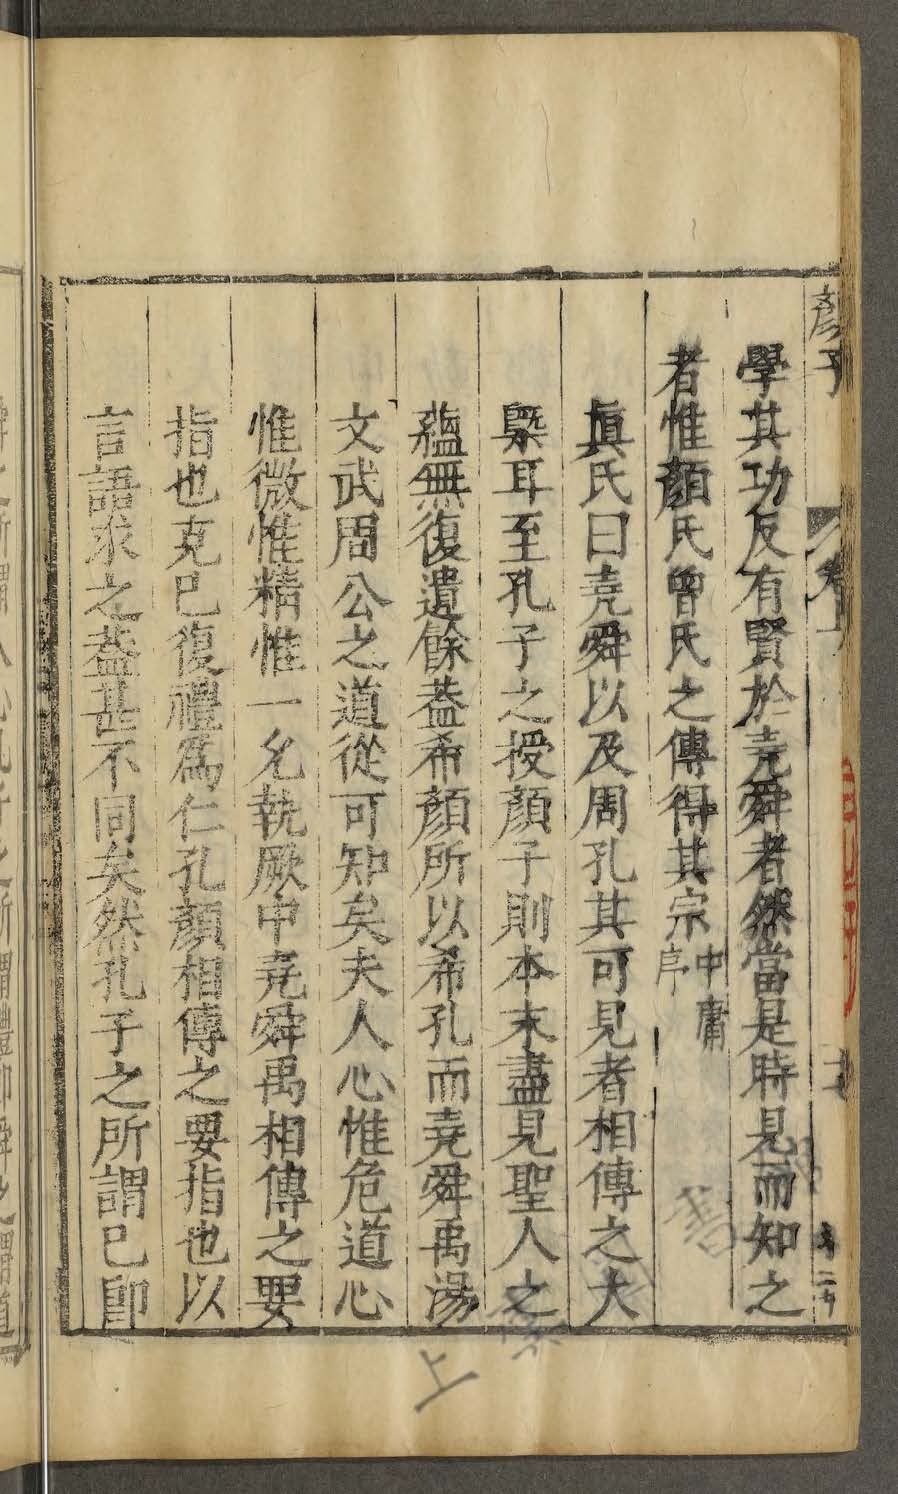 學其功反有賢於堯舜者然當是時見而知之
者惟顏氏曾氏之傳得其宗中庸序
眞氏曰堯舜以及周孔其可見者相傳之大
槩耳至孔子之授顏子則本末盡見聖人之
蘊無復遺餘葢希顏所以希孔而堯舜禹湯
文武周公之道從可知矣夫人心惟危道心
惟微惟精惟一允執厥中堯舜禹相傳之要
指也克已復禮爲仁孔顏相傳之要指也以
言語求之葢甚不同矣然孔子之所謂已卽